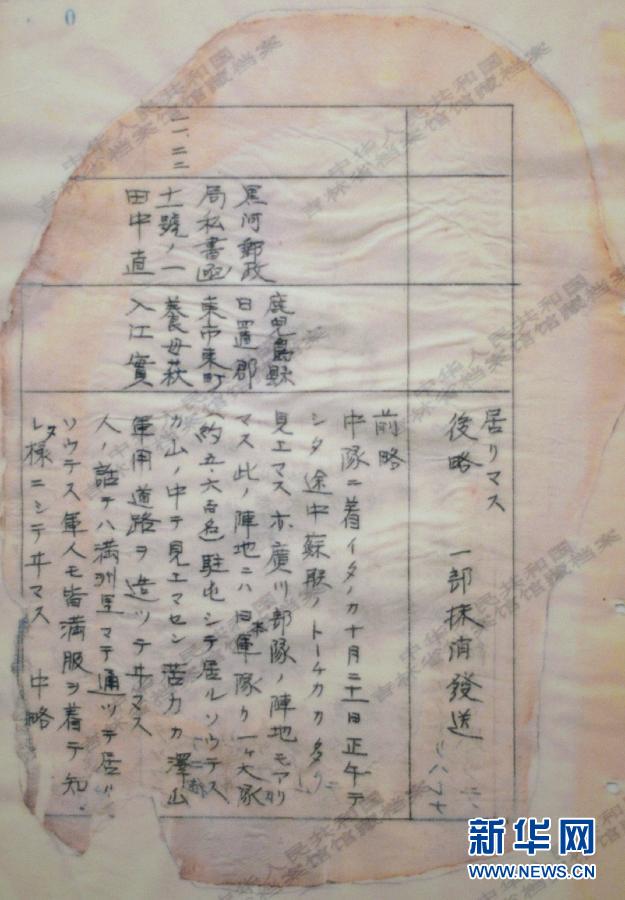 居リマス
後略　一部抹消發送
一一、二二
黒河郵政
局私書函
十一號ノ一
田中直
鹿児島縣
日置郡
東市来町
養母萩
入江實
前略
中隊ニ着イタノカ十月二十一日正午テ
シタ 途中蘇联ノトーチカカタクリ
見エマス 亦廣川部隊ノ陣地モアリ
マス此ノ陣地ニハ日本軍隊カ一ケ大隊
(約五六百名駐屯シテ居ルソウテス
カ山ノ中テ見エマセン苦力カ澤山
軍用道路ヲ造ツテヰマス
人ノ話テハ満洲里マテ通ツテ居ル
ソウテス軍人モ皆満服ヲ着テ知
レヌ様ニシテヰマス　中略
中华人民共和国
吉林省档案馆馆藏档案
新华网
WWW.NEWS.CN